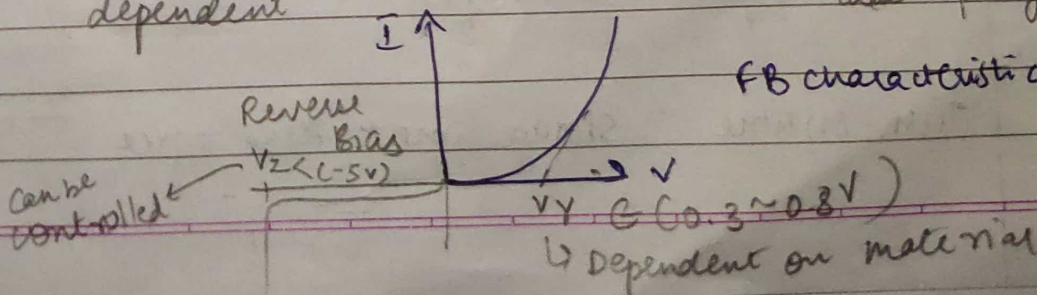 dependent
I
FB characteristic
Reverse
Bias
Vz < (-5V)
V
can be
controlled
Vγ ∈ (0.3 ~ 0.8V)
↳ Dependent on material